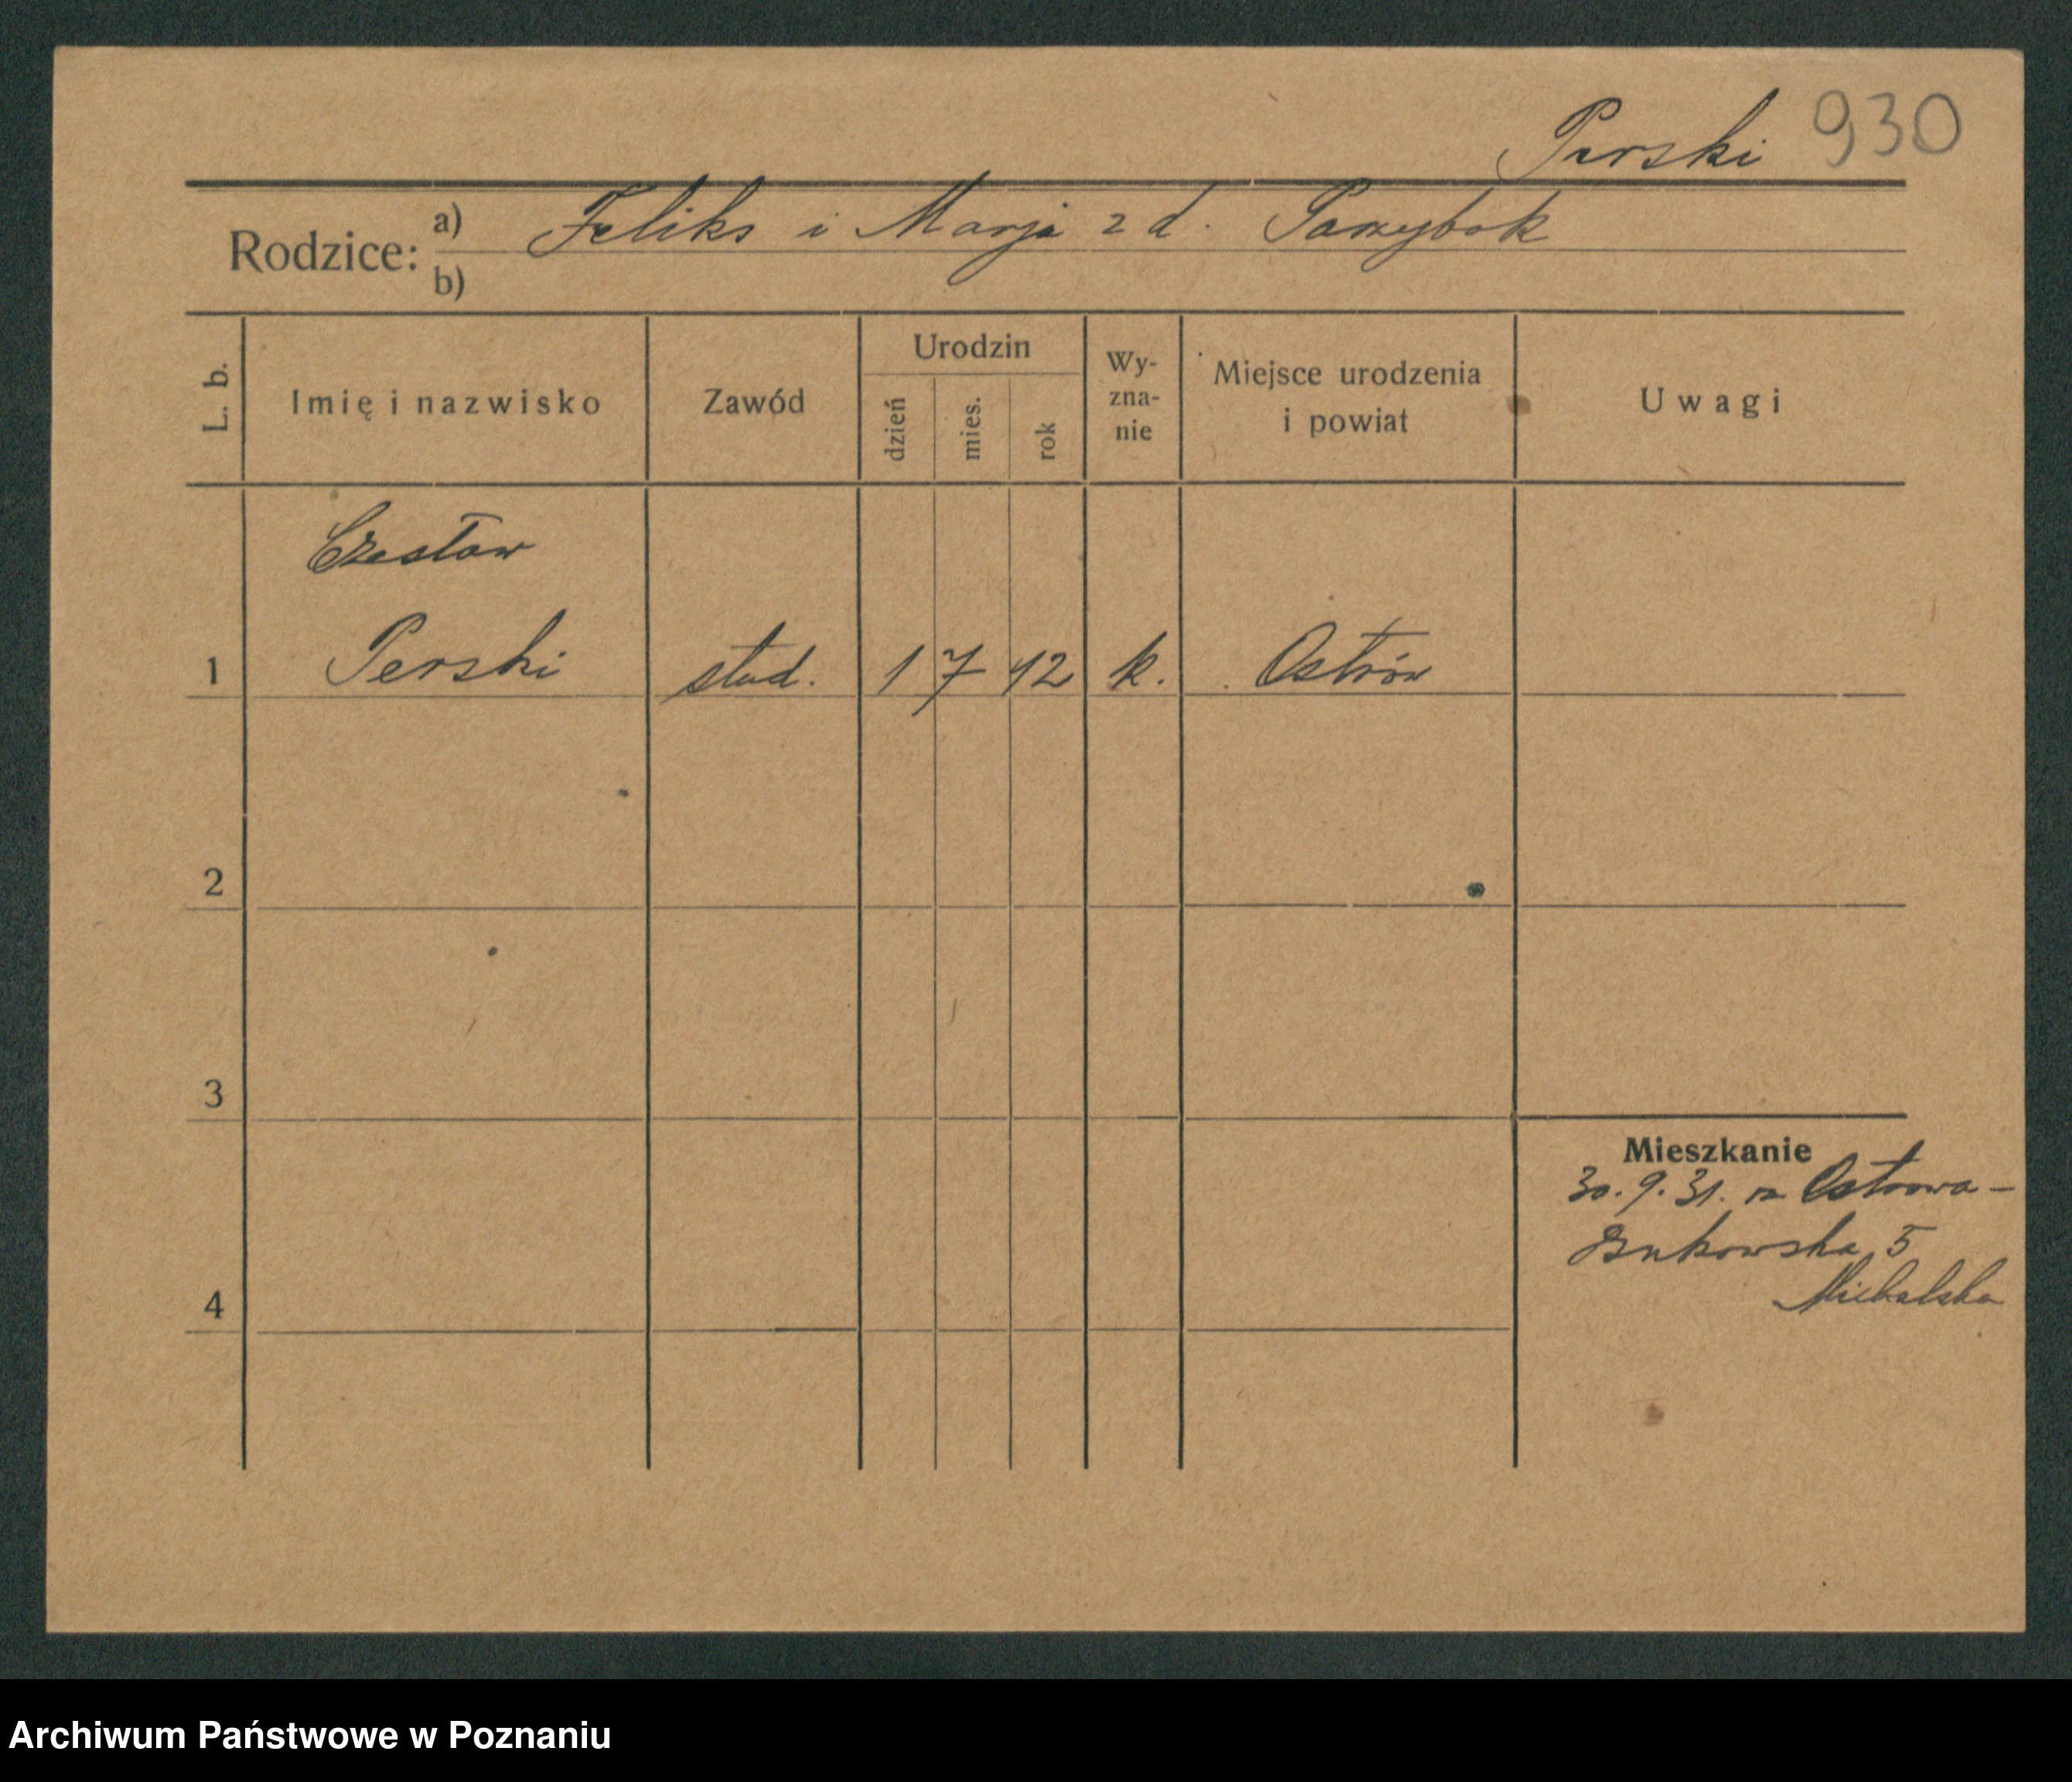 Perski 930
Rodzice: a) Feliks i Marja z d. Parzybok
b)
L. b. Imię i nazwisko Zawód Urodzin dzień mies. rok Wy-zna-nie Miejsce urodzenia i powiat Uwagi
Czesław
1 Perski stud. 1 7 12 k. Ostrów
2
3
Mieszkanie
30. 9. 31. z Ostrowa –
Bukowska 5
4 Michalska
Archiwum Państwowe w Poznaniu